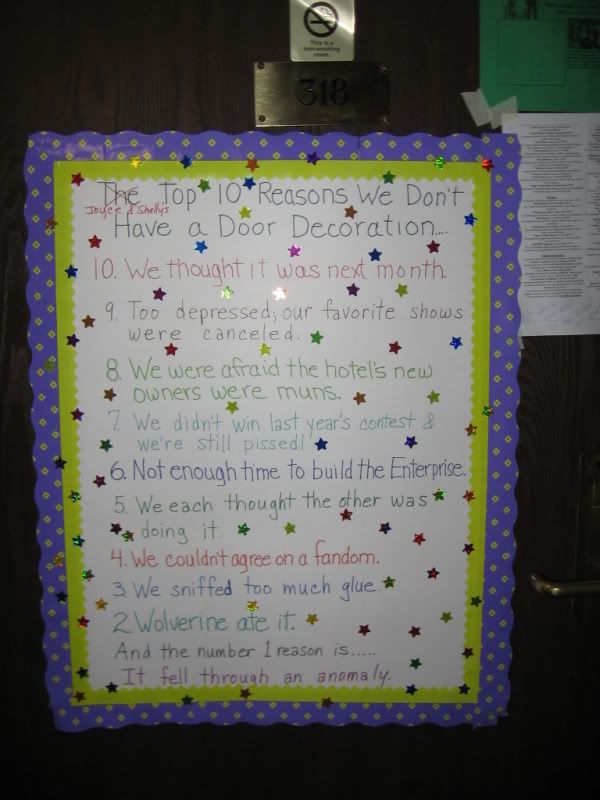 This is a
non-smoking
room.
318
The Top 10 Reasons We Don't
Joyce & Shelly's
Have a Door Decoration....
10. We thought it was next month.
9. Too depressed; our favorite shows
were canceled.
8. We were afraid the hotel's new
owners were muns.
7. We didn't win last year's contest &
we're still pissed!
6. Not enough time to build the Enterprise.
5. We each thought the other was
doing it.
4. We couldn't agree on a fandom.
3. We sniffed too much glue.
2. Wolverine ate it.
And the number 1 reason is.....
It fell through an anomaly.